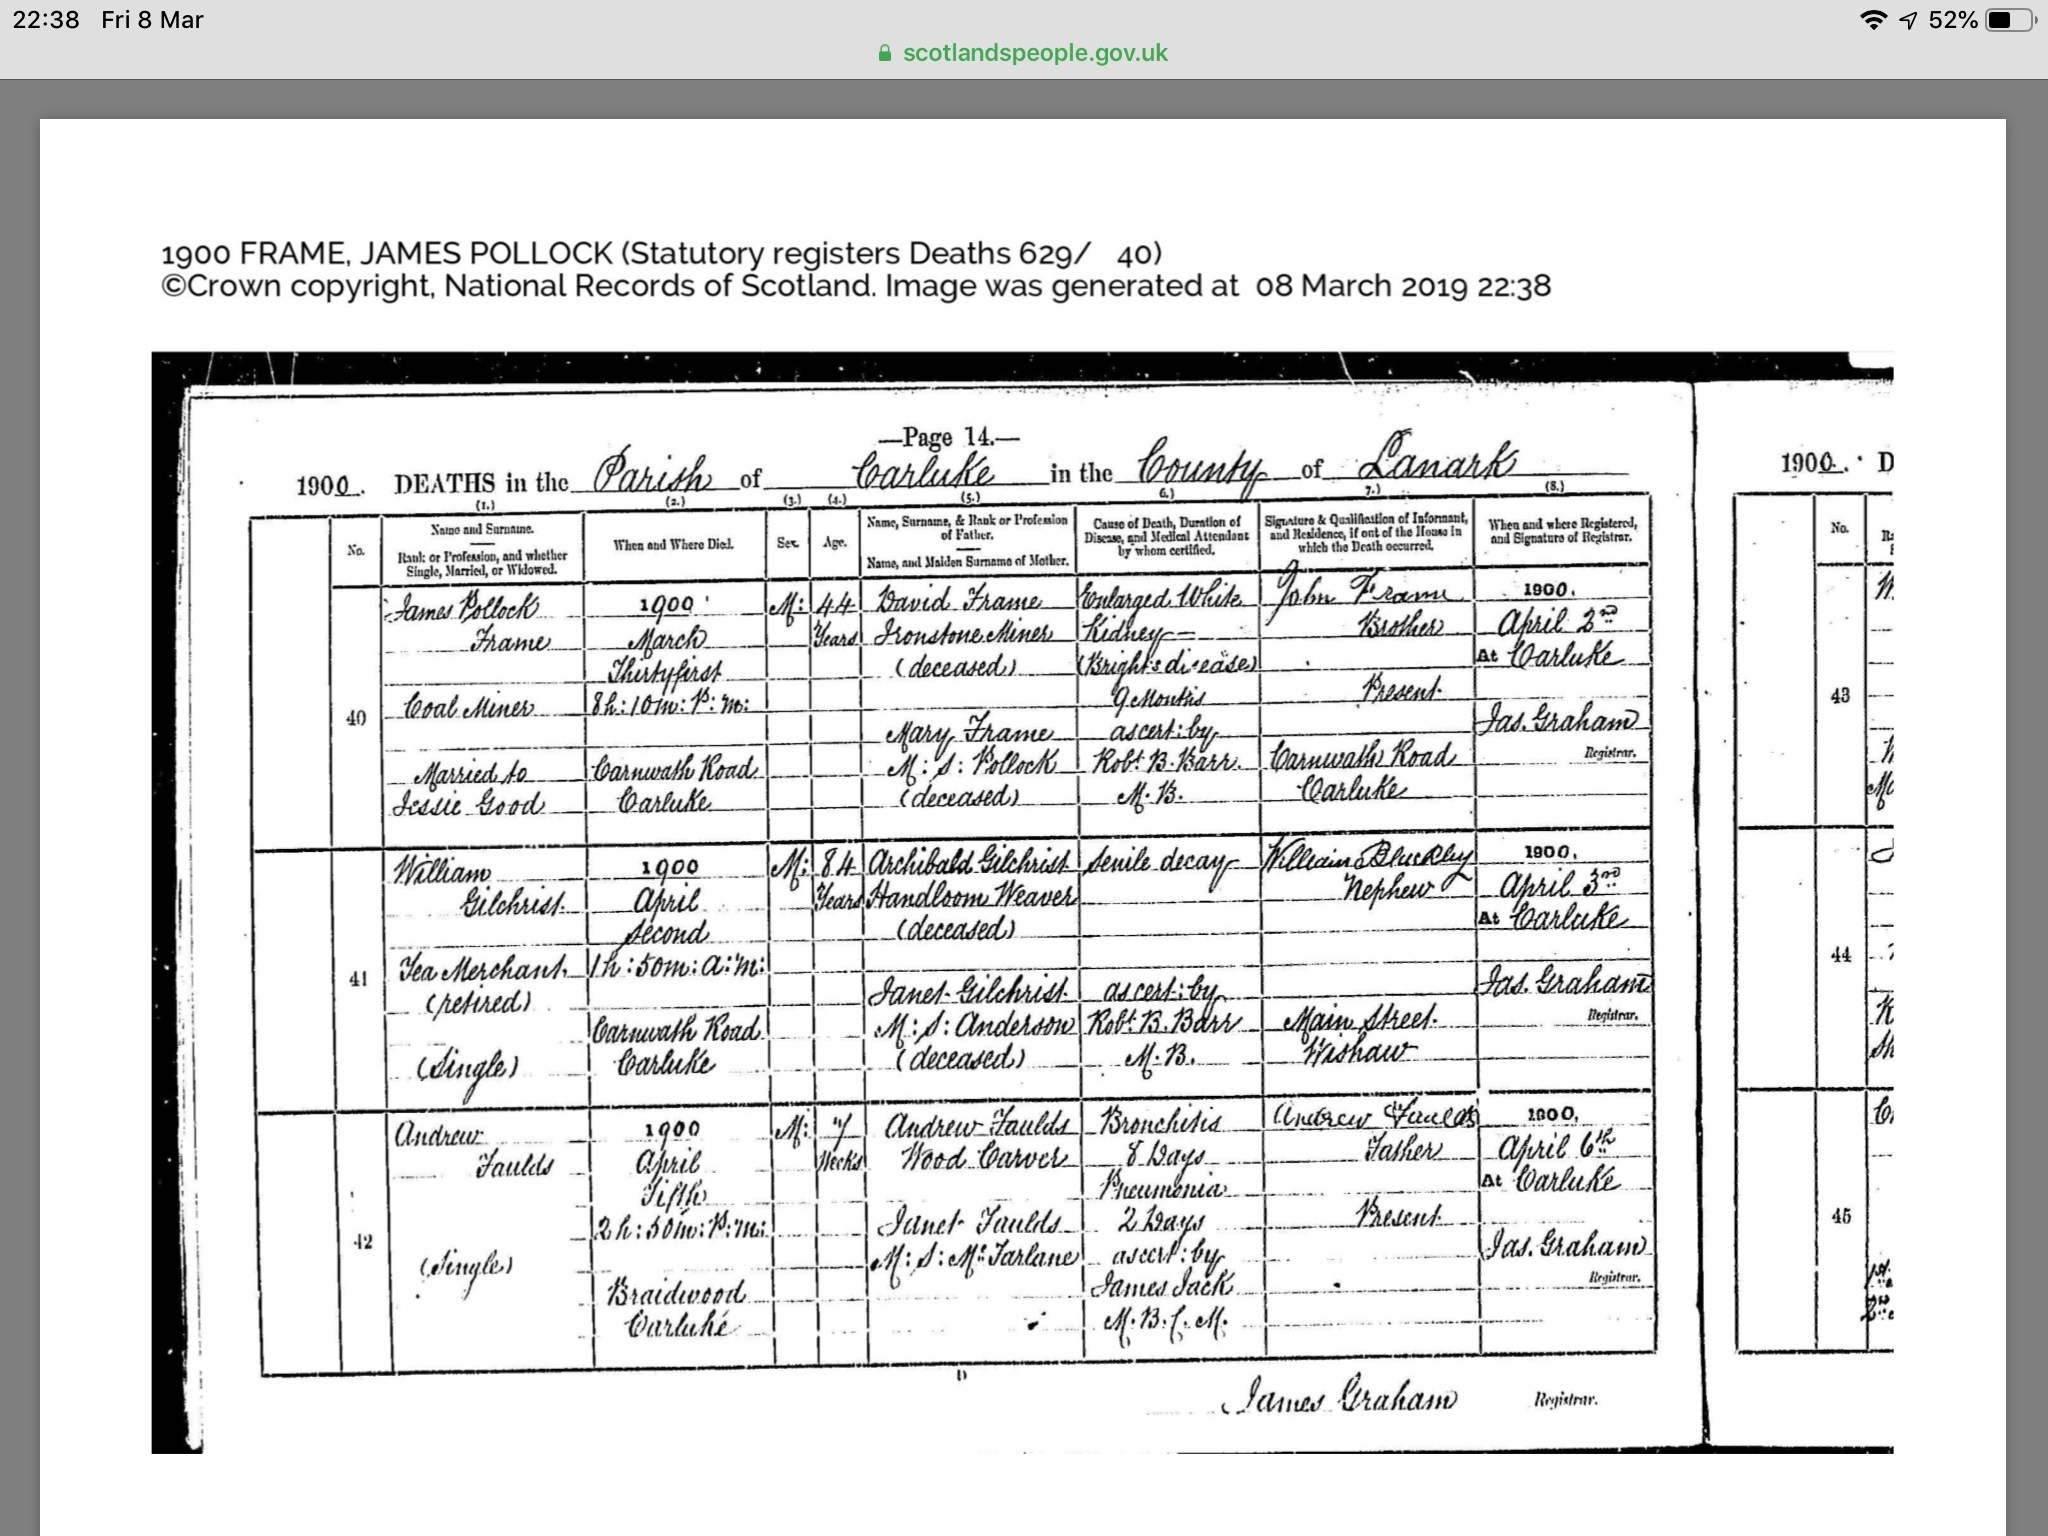 22:38 Fri 8 Mar
52%
scotlandspeople.gov.uk
1900 FRAME, JAMES POLLOCK (Statutory registers Deaths 629/ 40)
©Crown copyright, National Records of Scotland. Image was generated at 08 March 2019 22:38
—Page 14.—
1900. DEATHS in the Parish of Carluke in the County of Lanark
1900. D
(1.) (2.) (3.) (4.) (5.) 6.) 7.) (8.)
No.
Name and Surname.
Rank or Profession, and whether
Single, Married, or Widowed.
When and Where Died.
Sex.
Age.
Name, Surname, & Rank or Profession
of Father.
Name, and Maiden Surname of Mother.
Cause of Death, Duration of
Disease, and Medical Attendant
by whom certified.
Signature & Qualification of Informant,
and Residence, if out of the House in
which the Death occurred.
When and where Registered,
and Signature of Registrar.
No.
40
James Pollock
Frame
Coal Miner
Married to
Jessie Good
1900
March
Thirtyfirst
8h:10m:P:m:
Carnwath Road
Carluke
M:
44
Years
David Frame
Ironstone Miner
(deceased)
Mary Frame
M:S: Pollock
(deceased)
Enlarged White
Kidney—
(Bright's disease)
9 Months
ascert: by
Robt. B. Barr
M.B.
John Frame
Brother
Present
Carnwath Road
Carluke
1900.
April 2nd
At Carluke
Jas. Graham
Registrar.
43
41
William
Gilchrist
Tea Merchant
(retired)
(Single)
1900
April
Second
1h:50m:a:m:
Carnwath Road
Carluke
M:
84
Years
Archibald Gilchrist
Handloom Weaver
(deceased)
Janet Gilchrist
M:S: Anderson
(deceased)
Senile decay
ascert: by
Robt. B. Barr
M.B.
William
Nephew
Main Street
Wishaw
1900.
April 3rd
At Carluke
Jas. Graham
Registrar.
44
42
Andrew
Faulds
(Single)
1900
April
Fifth
2h:50m:P:m:
Braidwood
Carluke
M:
7
Weeks
Andrew Faulds
Wood Carver
Janet Faulds
M:S: McFarlane
Bronchitis
8 Days
Pneumonia
2 Days
ascert: by
James Jack
M.B.C.M.
Andrew Faulds
Father
Present
1900.
April 6th
At Carluke
Jas. Graham
Registrar.
45
D
James Graham Registrar.